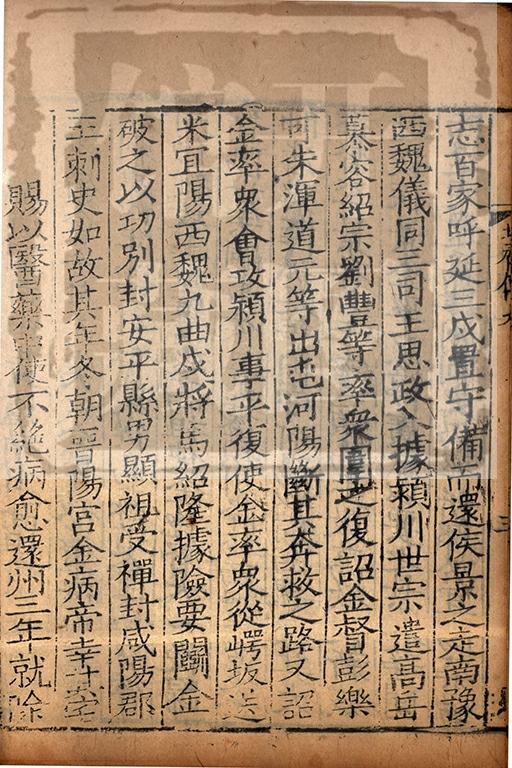 志百家呼延三戍置守備而還侯景之走南豫
西魏儀同三司王思政入據潁川世宗遣高岳
慕容紹宗劉豐等率衆圍之復詔金督彭樂
可朱渾道元等出屯河陽斷其奔救之路又詔
金率衆會攻潁川事平復使金率衆從崿坂送
米宜陽西魏九曲戍將馬紹隆據險要鬬金
破之以功別封安平縣男顯祖受禪封咸陽郡
王刺史如故其年冬朝晉陽宮金病帝幸其宅
賜以醫藥中使不絶病愈還州三年就除